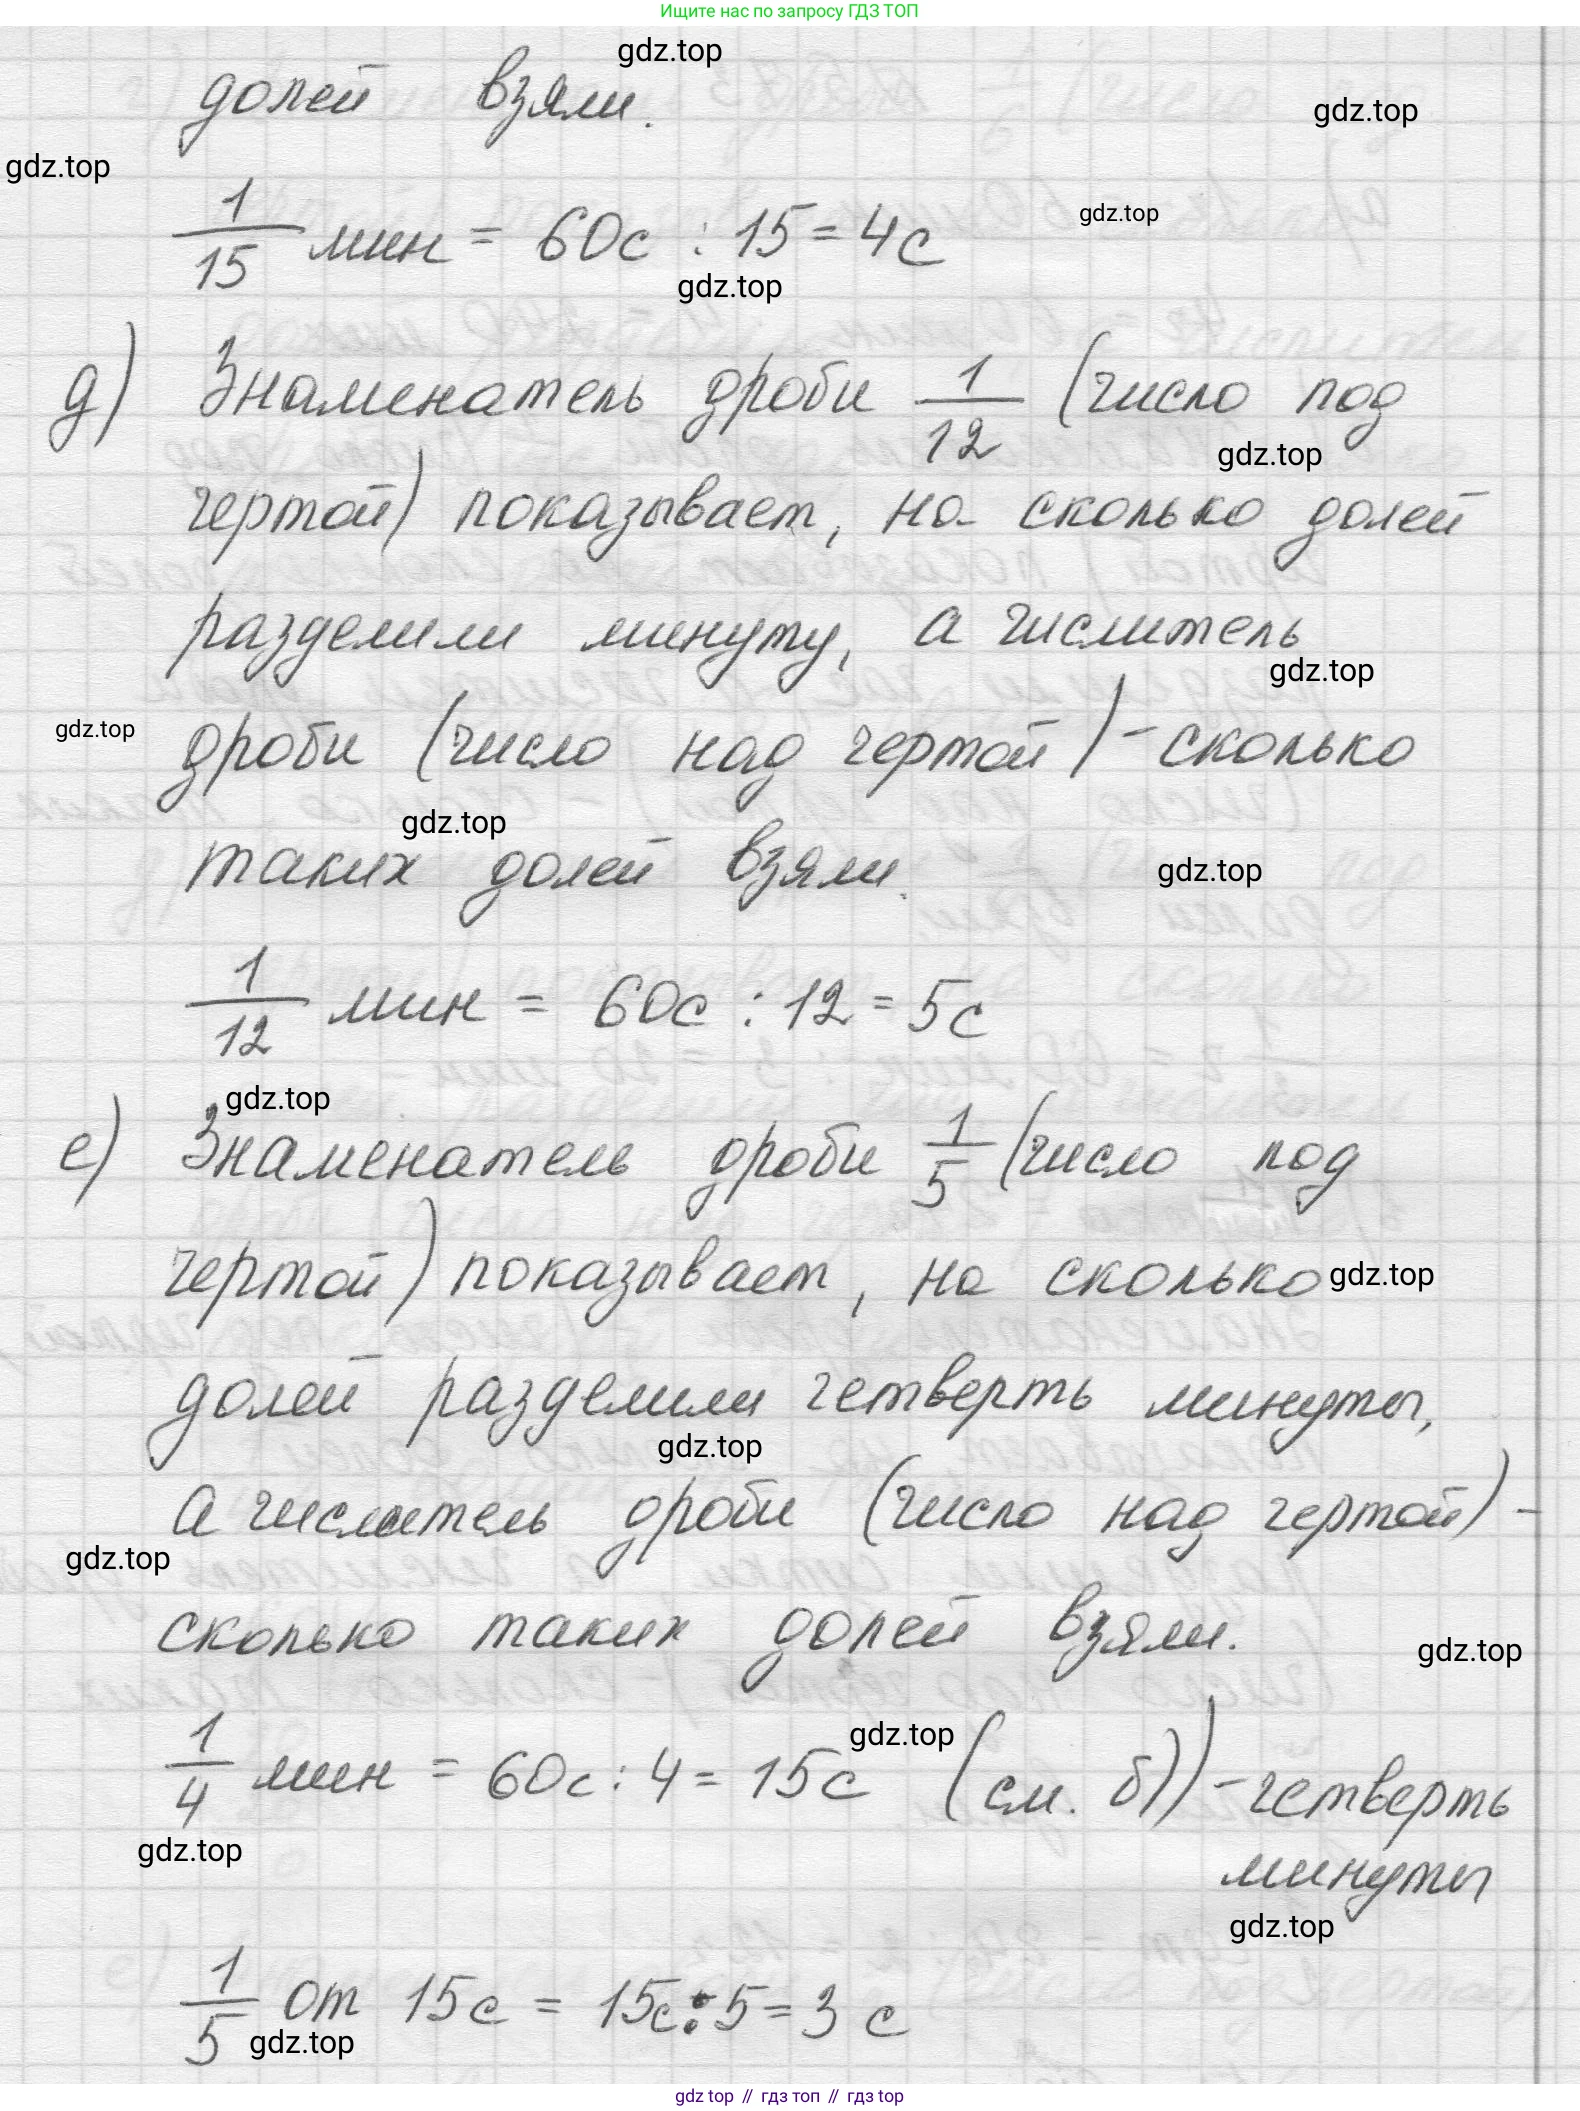 Ищите нас по запросу ГДЗ ТОП
gdz.top
долей взяли.
gdz.top
gdz.top
gdz.top
1/15 мин = 60с : 15 = 4с
gdz.top
д) Знаменатель дроби 1/12 (число под
gdz.top
чертой) показывает, на сколько долей
разделили минуту, а числитель
gdz.top
gdz.top
дроби (число над чертой) - сколько
gdz.top
таких долей взяли.
gdz.top
1/12 мин = 60с : 12 = 5с
gdz.top
е) Знаменатель дроби 1/5 (число под
чертой) показывает, на сколько
gdz.top
долей разделили четверть минуты,
gdz.top
а числитель дроби (число над чертой) -
gdz.top
сколько таких долей взяли.
gdz.top
gdz.top
1/4 мин = 60с : 4 = 15с (см. б)) - четверть
gdz.top
минуты
gdz.top
1/5 от 15с = 15с : 5 = 3 с
gdz.top
gdz top // гдз топ // гдз top